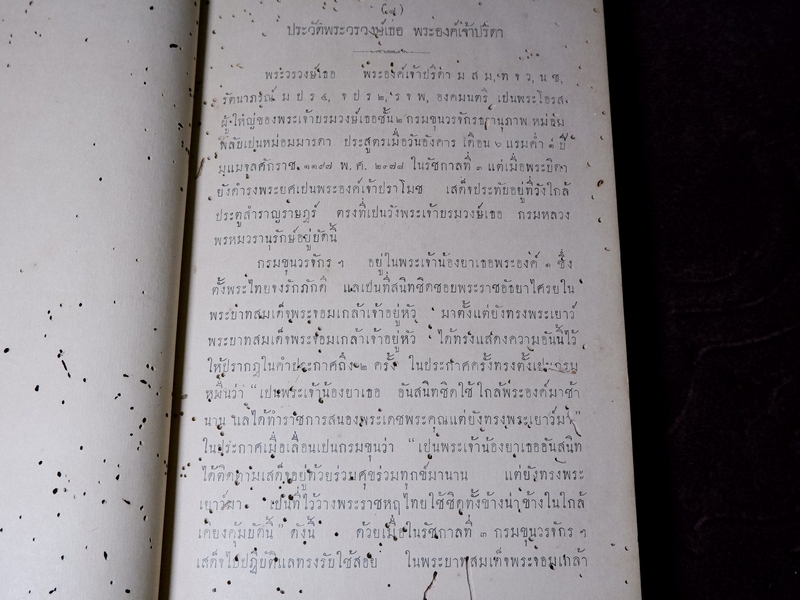 (๘)
ประวัติพระวรวงษ์เธอ พระองค์เจ้าปรีดา
พระวรวงษ์เธอ พระองค์เจ้าปรีดา ม ส ม, ท จ ว, น ช,
รัตนาภรณ์ ม ป ร ๔, จ ป ร ๒, ร จ พ, องคมนตรี เปนพระโอรส
ผู้ใหญ่ของพระเจ้าบรมวงษ์เธอชั้น ๒ กรมขุนวรจักรธรานุภาพ หม่อม
พลับเปนหม่อมมารดา ประสูตรเมื่อวันอังคาร เดือน ๖ แรมค่ำ ๑ ปี
มแมจุลศักราช ๑๑๙๗ พ. ศ. ๒๓๗๘ ในรัชกาลที่ ๓ แต่เมื่อพระบิดา
ยังดำรงพระยศเปนพระองค์เจ้าปราโมช เสด็จประทับอยู่ที่วังใกล้
ประตูสำราญราษฎร์ ตรงที่เปนวังพระเจ้าบรมวงษ์เธอ กรมหลวง
พรหมวรานุรักษ์อยู่บัดนี้
กรมขุนวรจักร ฯ อยู่ในพระเจ้าน้องยาเธอพระองค์ ๑ ซึ่ง
ตั้งพระไทยจงรักภักดี แลเปนที่สนิทชิดชอบพระราชอัธยาไศรยใน
พระบาทสมเด็จพระจอมเกล้าเจ้าอยู่หัว มาตั้งแต่ยังทรงพระเยาว์
พระบาทสมเด็จพระจอมเกล้าเจ้าอยู่หัว ได้ทรงแสดงความอันนี้ไว้
ให้ปรากฏในคำประกาศถึง ๒ ครั้ง ในประกาศครั้งทรงตั้งเปนกรม
หมื่นว่า "เปนพระเจ้าน้องยาเธอ อันสนิทชิดใช้ใกล้พระองค์มาช้า
นาน แลได้ทำราชการสนองพระเดชพระคุณแต่ยังทรงพระเยาว์มา"
ในประกาศเมื่อเลื่อนเปนกรมขุนว่า "เปนพระเจ้าน้องยาเธออันสนิท
ได้ติดตามเสด็จอยู่ด้วยร่วมศุขร่วมทุกข์มานาน แต่ยังทรงพระ
เยาว์มา เปนที่ไว้วางพระราชหฤไทยใช้ชิดทั้งข้างน่าข้างในใกล้
เคียงคุ้มบัดนี้" ดังนี้ ด้วยเมื่อในรัชกาลที่ ๓ กรมขุนวรจักร ฯ
เสด็จไปปฏิบัติแลทรงรับใช้สอย ในพระบาทสมเด็จพระจอมเกล้า